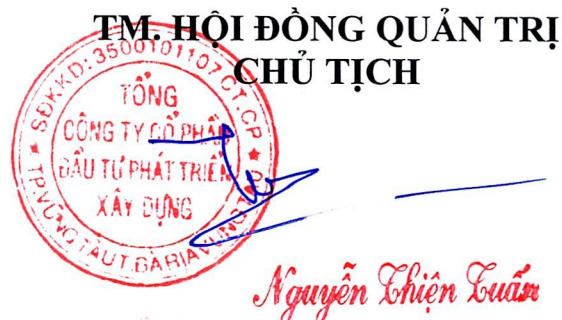 TM. HỘI ĐỒNG QUẢN TRỊ
CHỦ TỊCH
SĐKKD:3500101107.CT.CP
TỔNG
CÔNG TY CỔ PHẦN
ĐẦU TƯ PHÁT TRIỂN
XÂY DỰNG
TP.VŨNG TÀU T.BÀ RỊA VŨNG TÀU
Nguyễn Thiện Tuấn